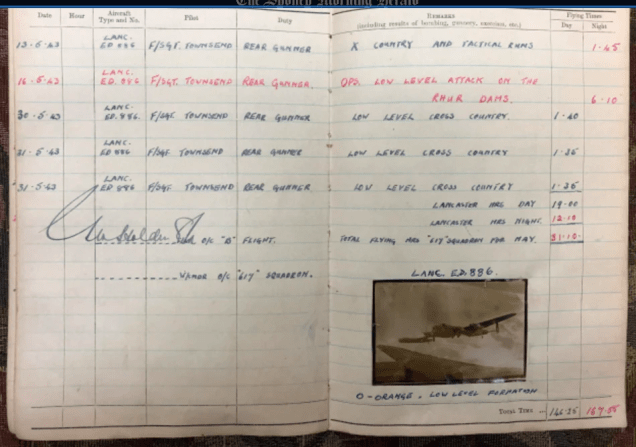 The Sydney Morning Herald
Date Hour Aircraft Type and No. Pilot Duty Remarks (including results of bombing, gunnery, exercises, etc.) Flying Times
Day Night
13.5.43 LANC. ED 886 F/SGT. TOWNSEND REAR GUNNER X COUNTRY AND TACTICAL RUNS 1.45
16.5.43 LANC. ED. 886 F/SGT. TOWNSEND REAR GUNNER. OPS. LOW LEVEL ATTACK ON THE
RHUR DAMS. 6.10
30.5.43 LANC. ED. 886. F/SGT TOWNSEND REAR GUNNER LOW LEVEL CROSS COUNTRY. 1.40
31.5.43 LANC. ED 886 F/SGT TOWNSEND REAR GUNNER LOW LEVEL CROSS COUNTRY
31.5.43 LANC. ED 886 F/SGT TOWNSEND REAR GUNNER LOW LEVEL CROSS COUNTRY
LANCASTER HRS DAY 19.00
LANCASTER HRS NIGHT. 12.10
O/C "B" FLIGHT. TOTAL FLYING HRS "617" SQUADRON FOR MAY. 31.10.
O/C "617" SQUADRON. LANC. ED.886.
O-ORANGE. LOW LEVEL FORMATION
Total Time ...